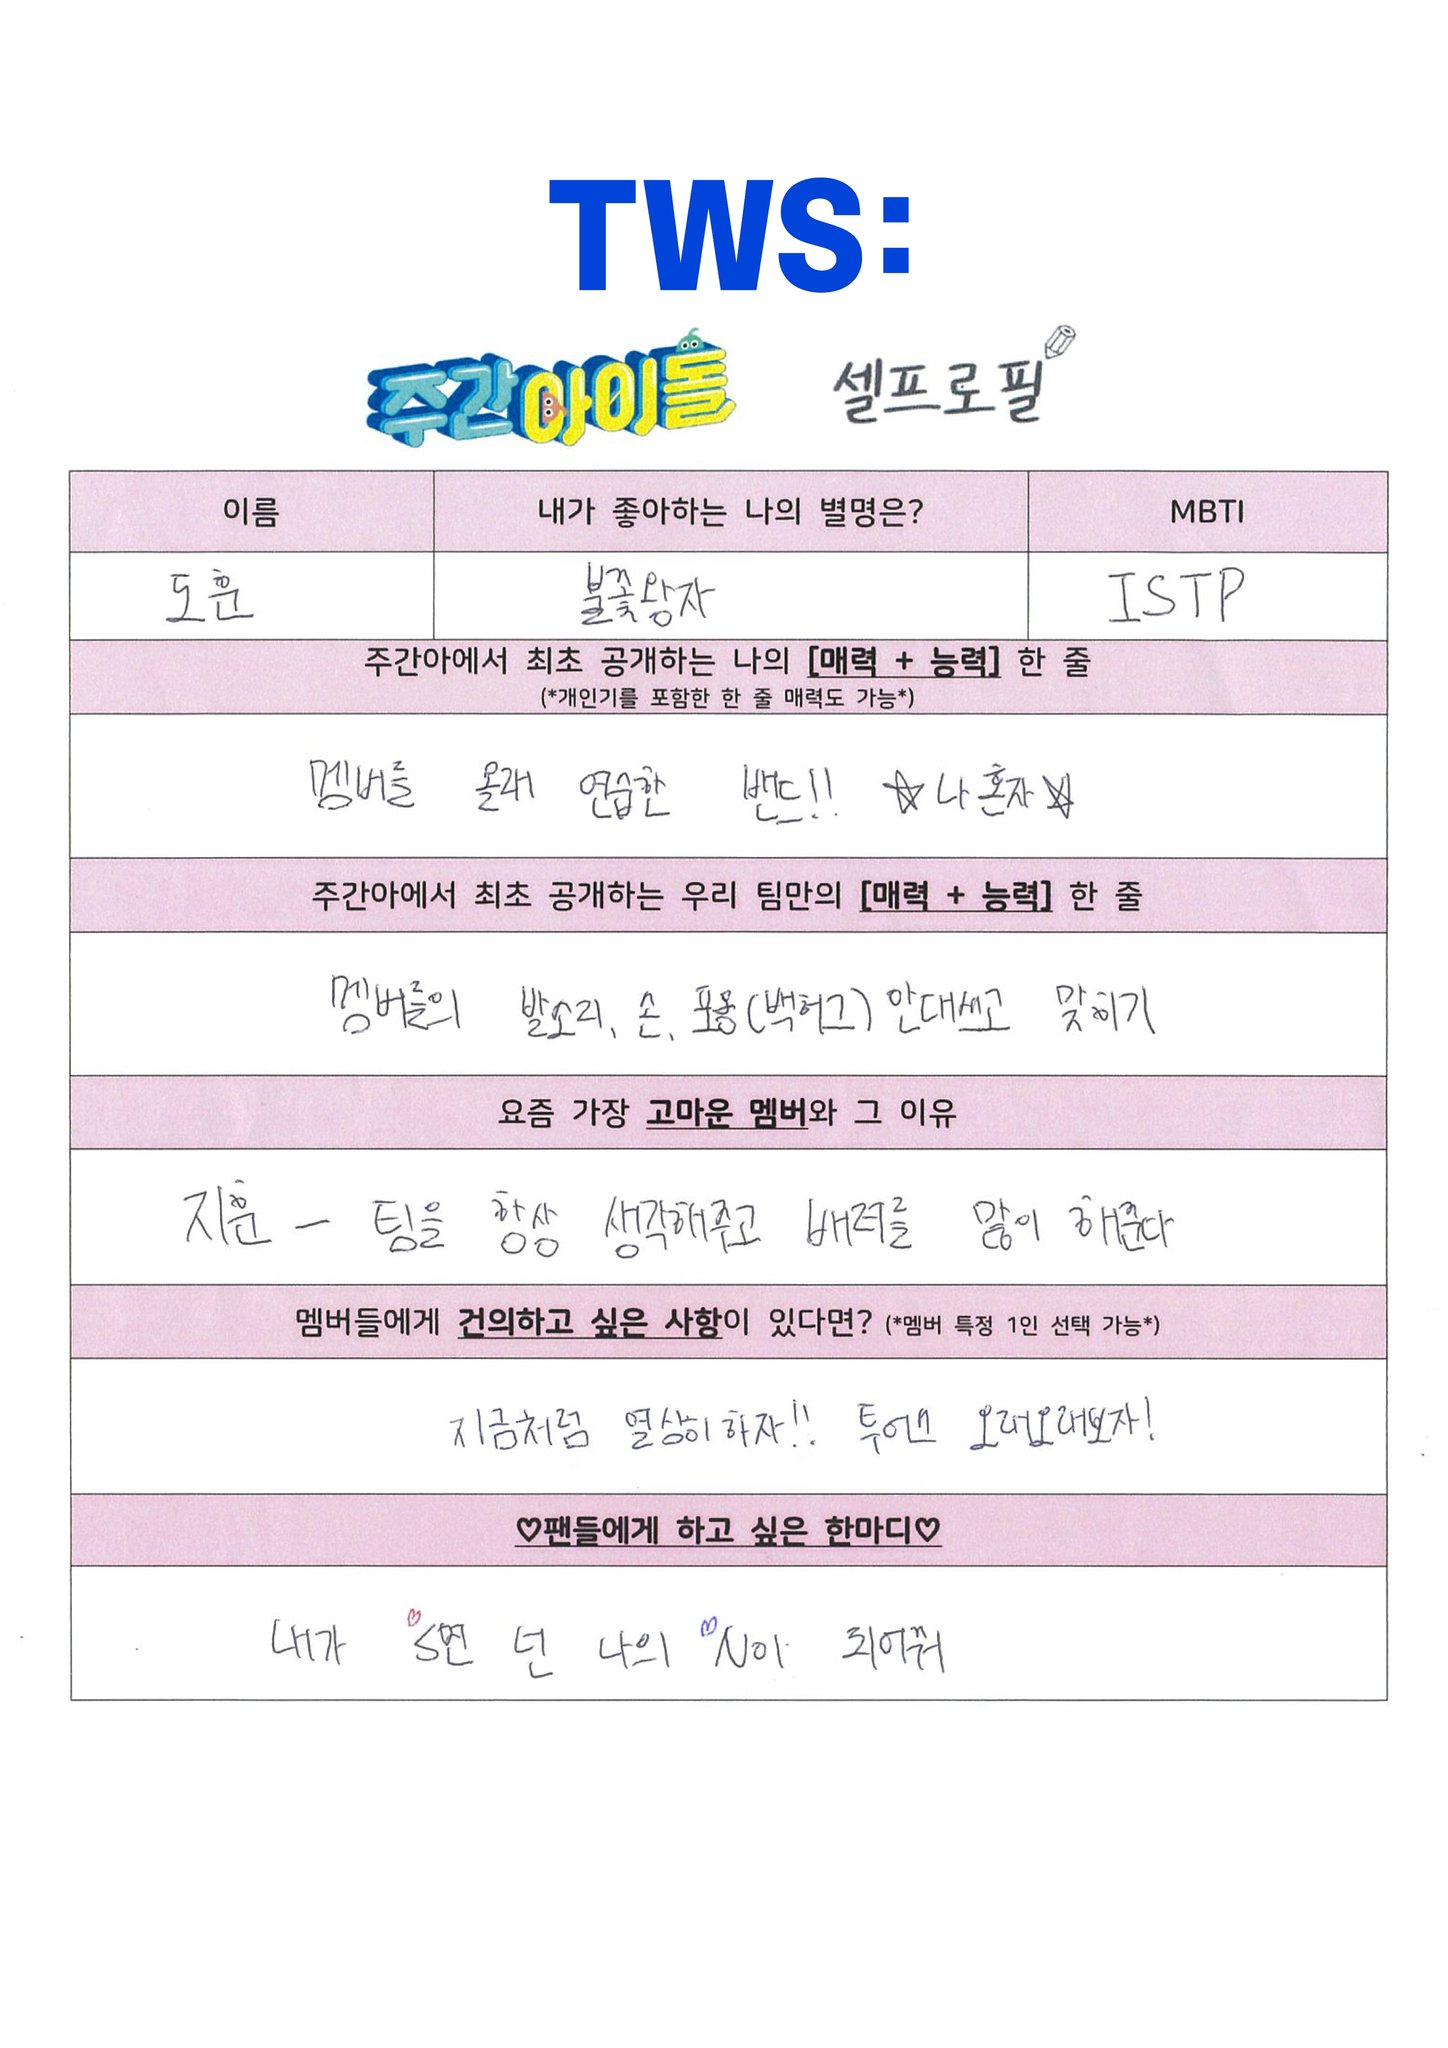 TWS:
주간아이돌 셀프로필
이름 내가 좋아하는 나의 별명은? MBTI
도훈 불꽃왕자 ISTP
주간아에서 최초 공개하는 나의 [매력 + 능력] 한 줄
(*개인기를 포함한 한 줄 매력도 가능*)
멤버들 몰래 연습한 밴드!! ☆나 혼자☆
주간아에서 최초 공개하는 우리 팀만의 [매력 + 능력] 한 줄
멤버들의 발소리, 손, 포옹(백허그) 안대쓰고 맞히기
요즘 가장 고마운 멤버와 그 이유
지훈 - 팀을 항상 생각해주고 배려를 많이 해준다
멤버들에게 건의하고 싶은 사항이 있다면? (*멤버 특정 1인 선택 가능*)
지금처럼 열심히하자!! 투어스 오래오래보자!
♡팬들에게 하고 싶은 한마디♡
내가 S면 넌 나의 N이 되어줘